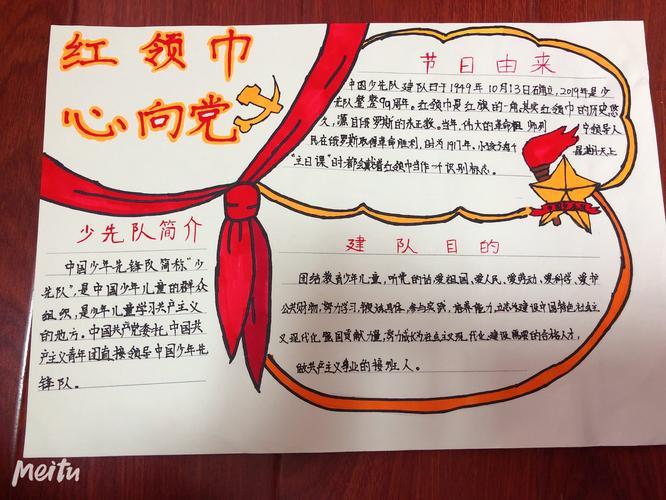 红领巾
心向党
节日由来
中国少先队建队日于1949年10月13日确立,2019年是少
先队整整70周年。红领巾是红旗的一角,其实红领巾的历史悠
久,源自俄罗斯的东正教。当年,伟大的革命家列宁领导人
民在俄罗斯取得革命胜利,时为1917年,小孩子每个星期天上
"主日课"时,都会戴着红领巾当作一个识别标志。
少先队简介
中国少年先锋队简称"少
先队",是中国少年儿童的群众
组织,是少年儿童学习共产主义
的地方。中国共产党委托,中国共
产主义青年团直接领导中国少年先
锋队。
建队目的
团结教育少年儿童,听党的话,爱祖国、爱人民、爱劳动、爱科学、爱护
公共财物,努力学习,锻炼身体,参与实践,培养能力,立志为建设中国特色社会主
义现代化强国贡献力量,努力成长为社会主义现代化建设需要的合格人才,
做共产主义事业的接班人。
meitu